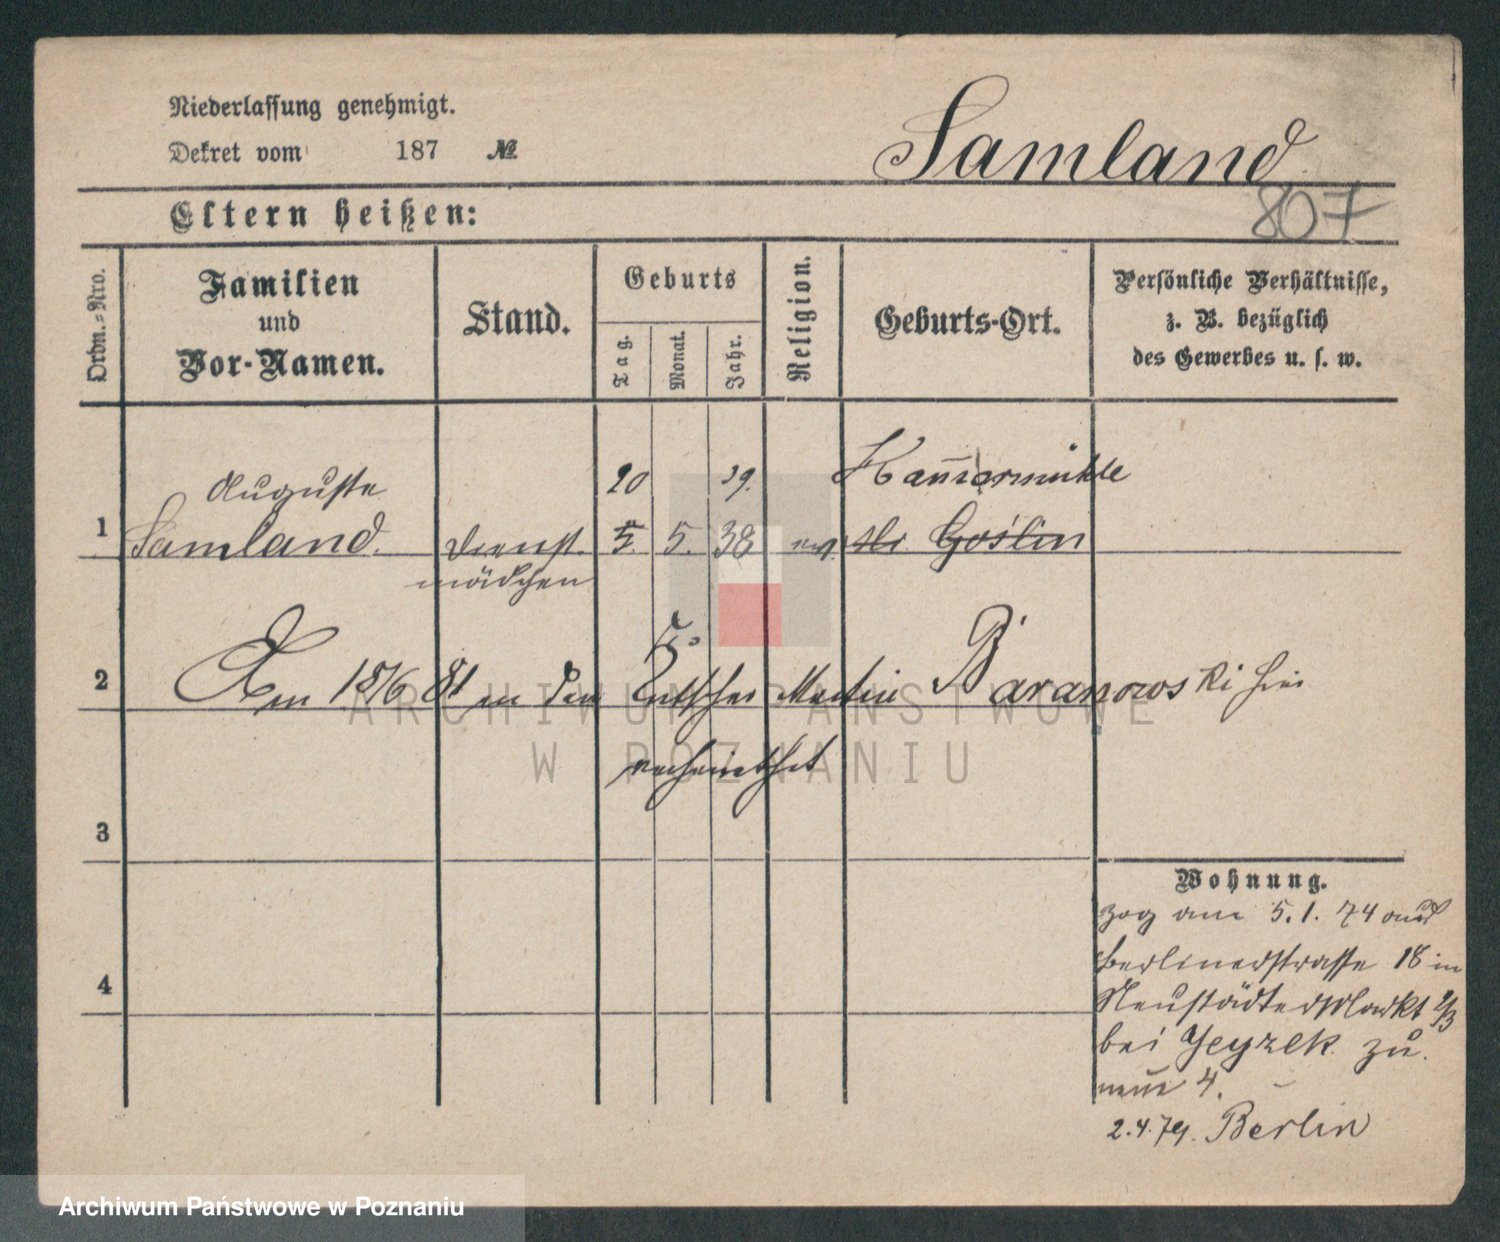 Niederlassung genehmigt.
Dekret vom 187 №
Samland
807
Eltern heißen:
Ordn.-Nro.
Familien
und
Vor-Namen.
Stand.
Geburts
Tag.
Monat.
Jahr.
Religion.
Geburts-Ort.
Persönliche Verhältnisse,
z. B. bezüglich
des Gewerbes u. s. w.
Auguste 20 39. Hammermühle
1 Samland. Dienst- 5. 5. 38 ev. Goślin
mädchen
2 5. Martin Baranowski hier
verheirathet
3
4
Wohnung.
zog am 5.1.74 aus
Berlinerstrasse 18 in
Neustädter Markt 2/3
bei Jeyzek zu.
neue 4.
2.4.79. Berlin
ARCHIWUM PAŃSTWOWE
W POZNANIU
Archiwum Państwowe w Poznaniu